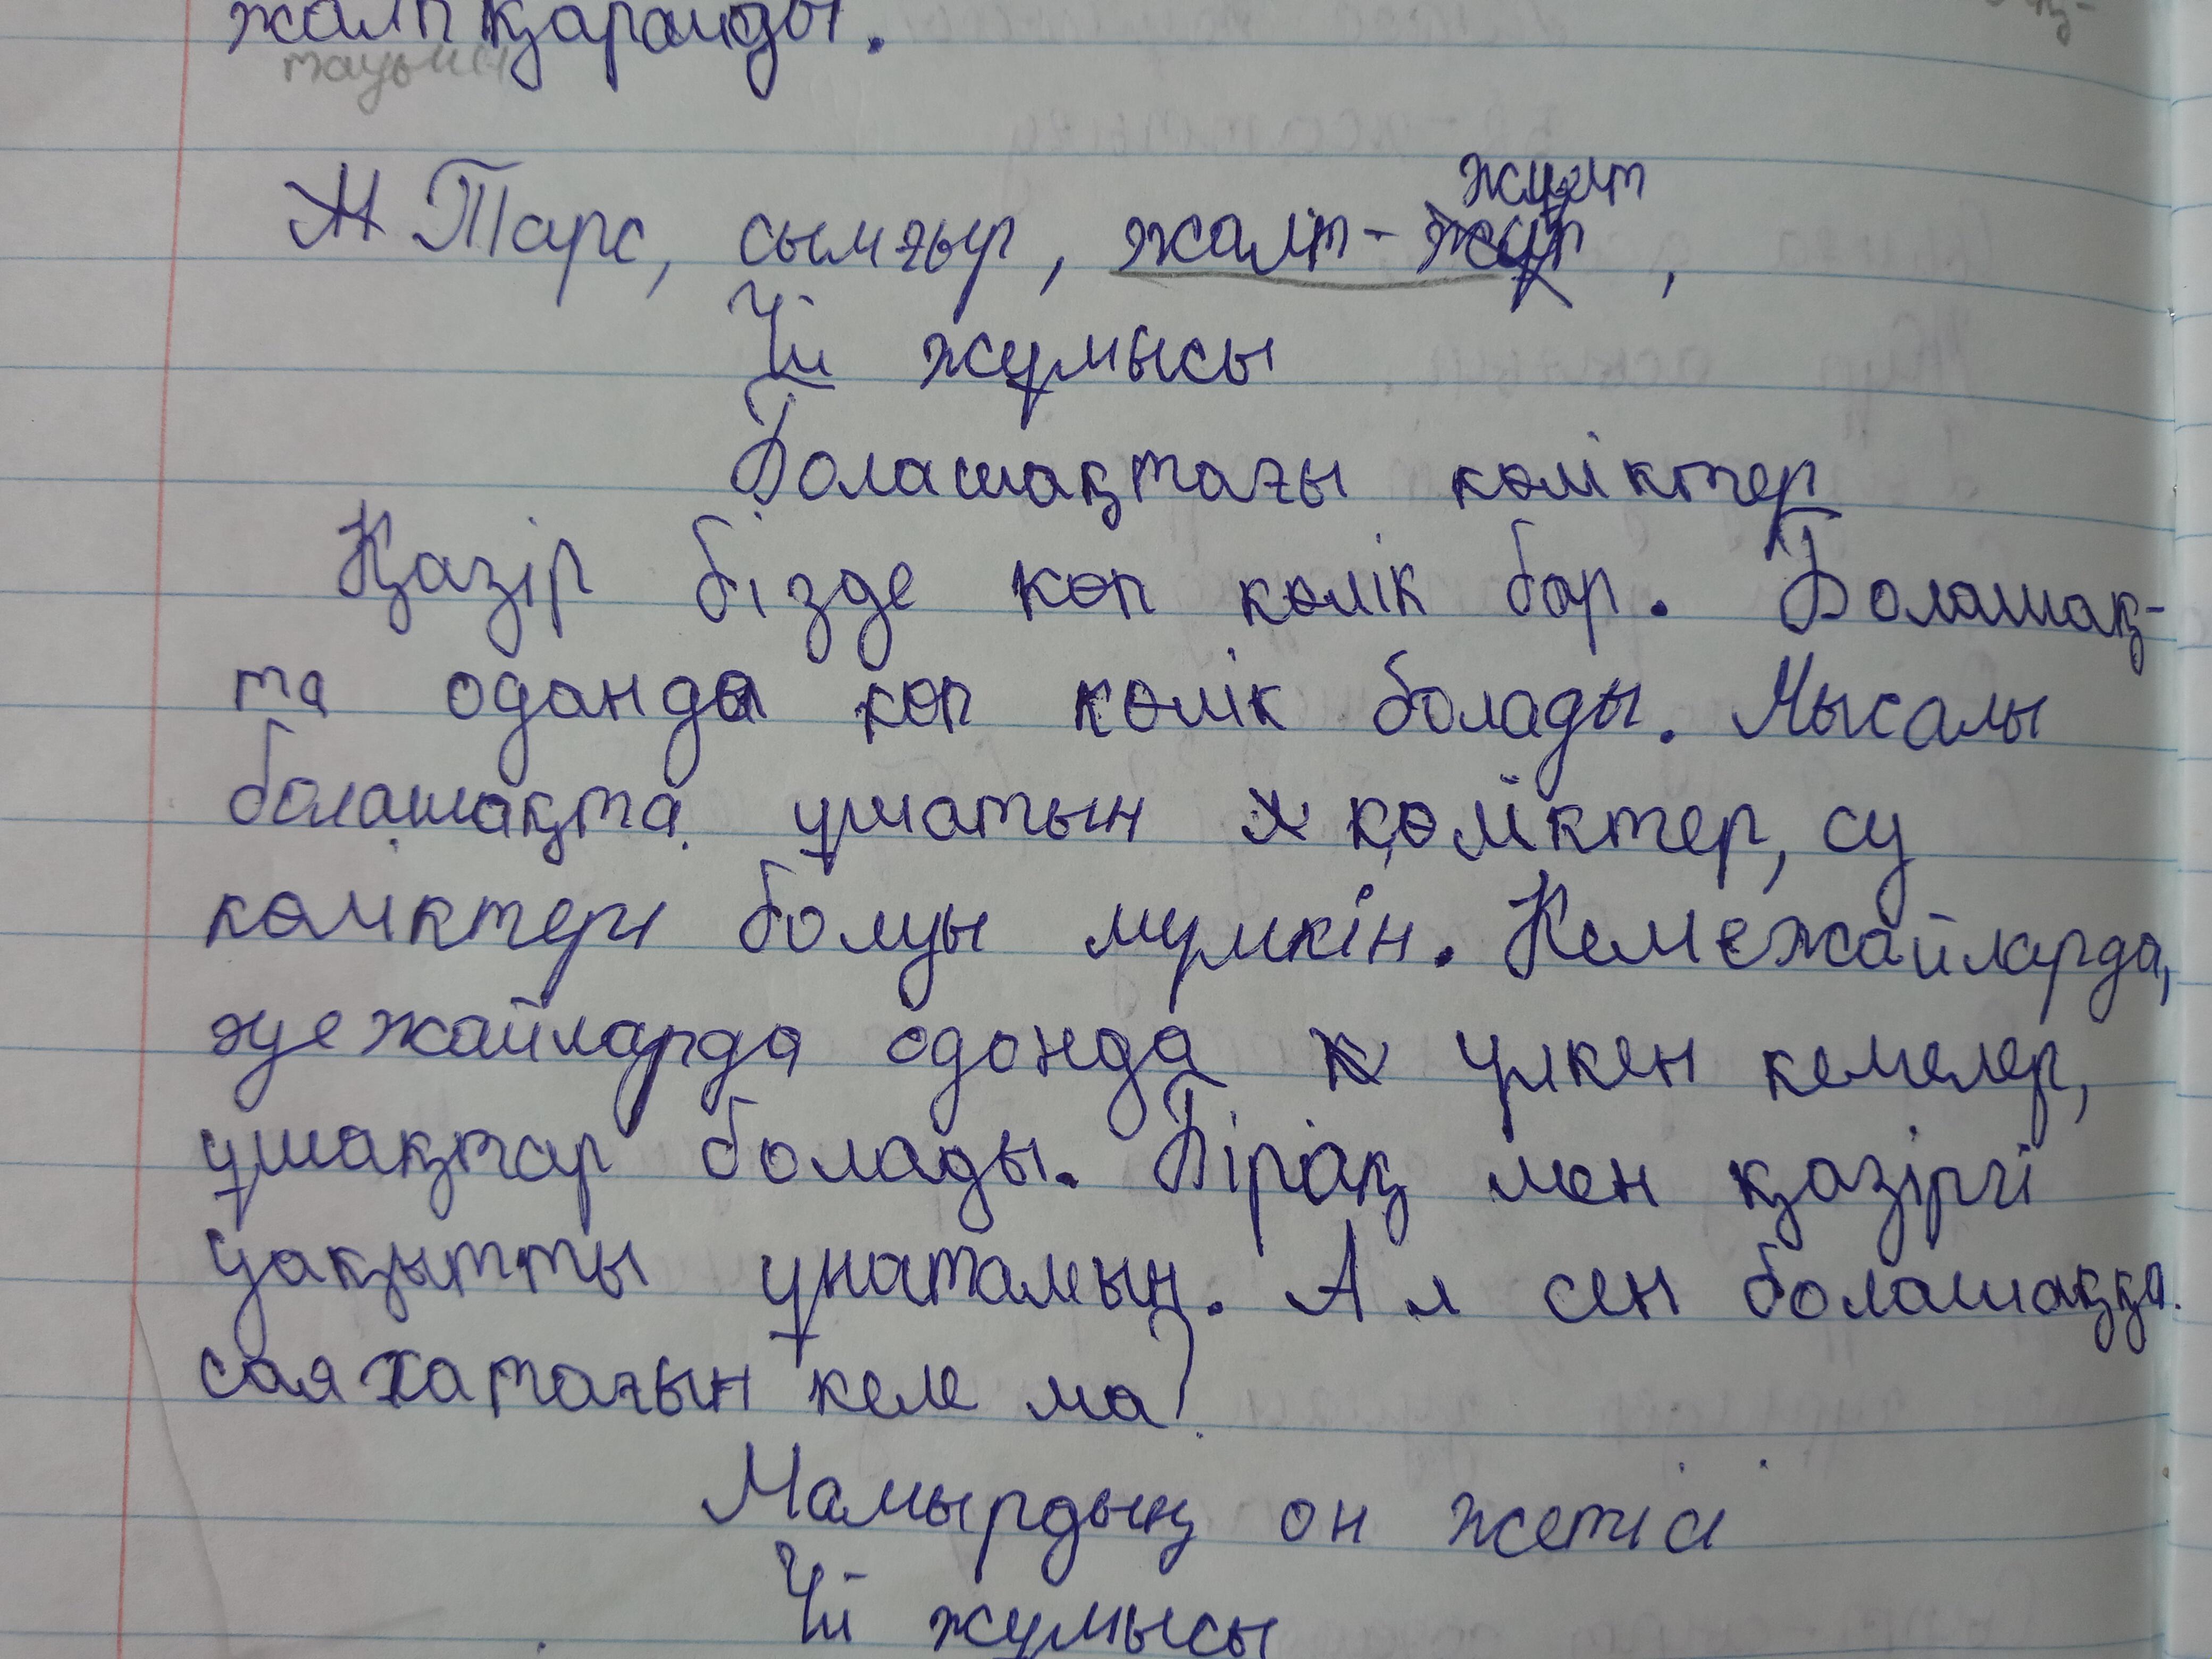 жалп қарайды.
тауын
Тарс, сымғыр, жалт-жұлт,
Үй жұмысы
Болашақтағы көліктер
Қазір бізде көп көлік бар. Болашақ-
та оданда көп көлік болады. Мысалы
болашақта ұшатын көліктер, су
көліктері болуы мүмкін. Кемежайларда,
әуежайларда оданда үлкен кемелер,
ұшақтар болады. Бірақ мен қазіргі
уақытты ұнатамын. Ал сен болашаққа
саяхатағын келе ма?
Мамырдың он жетісі
Үй жұмысы